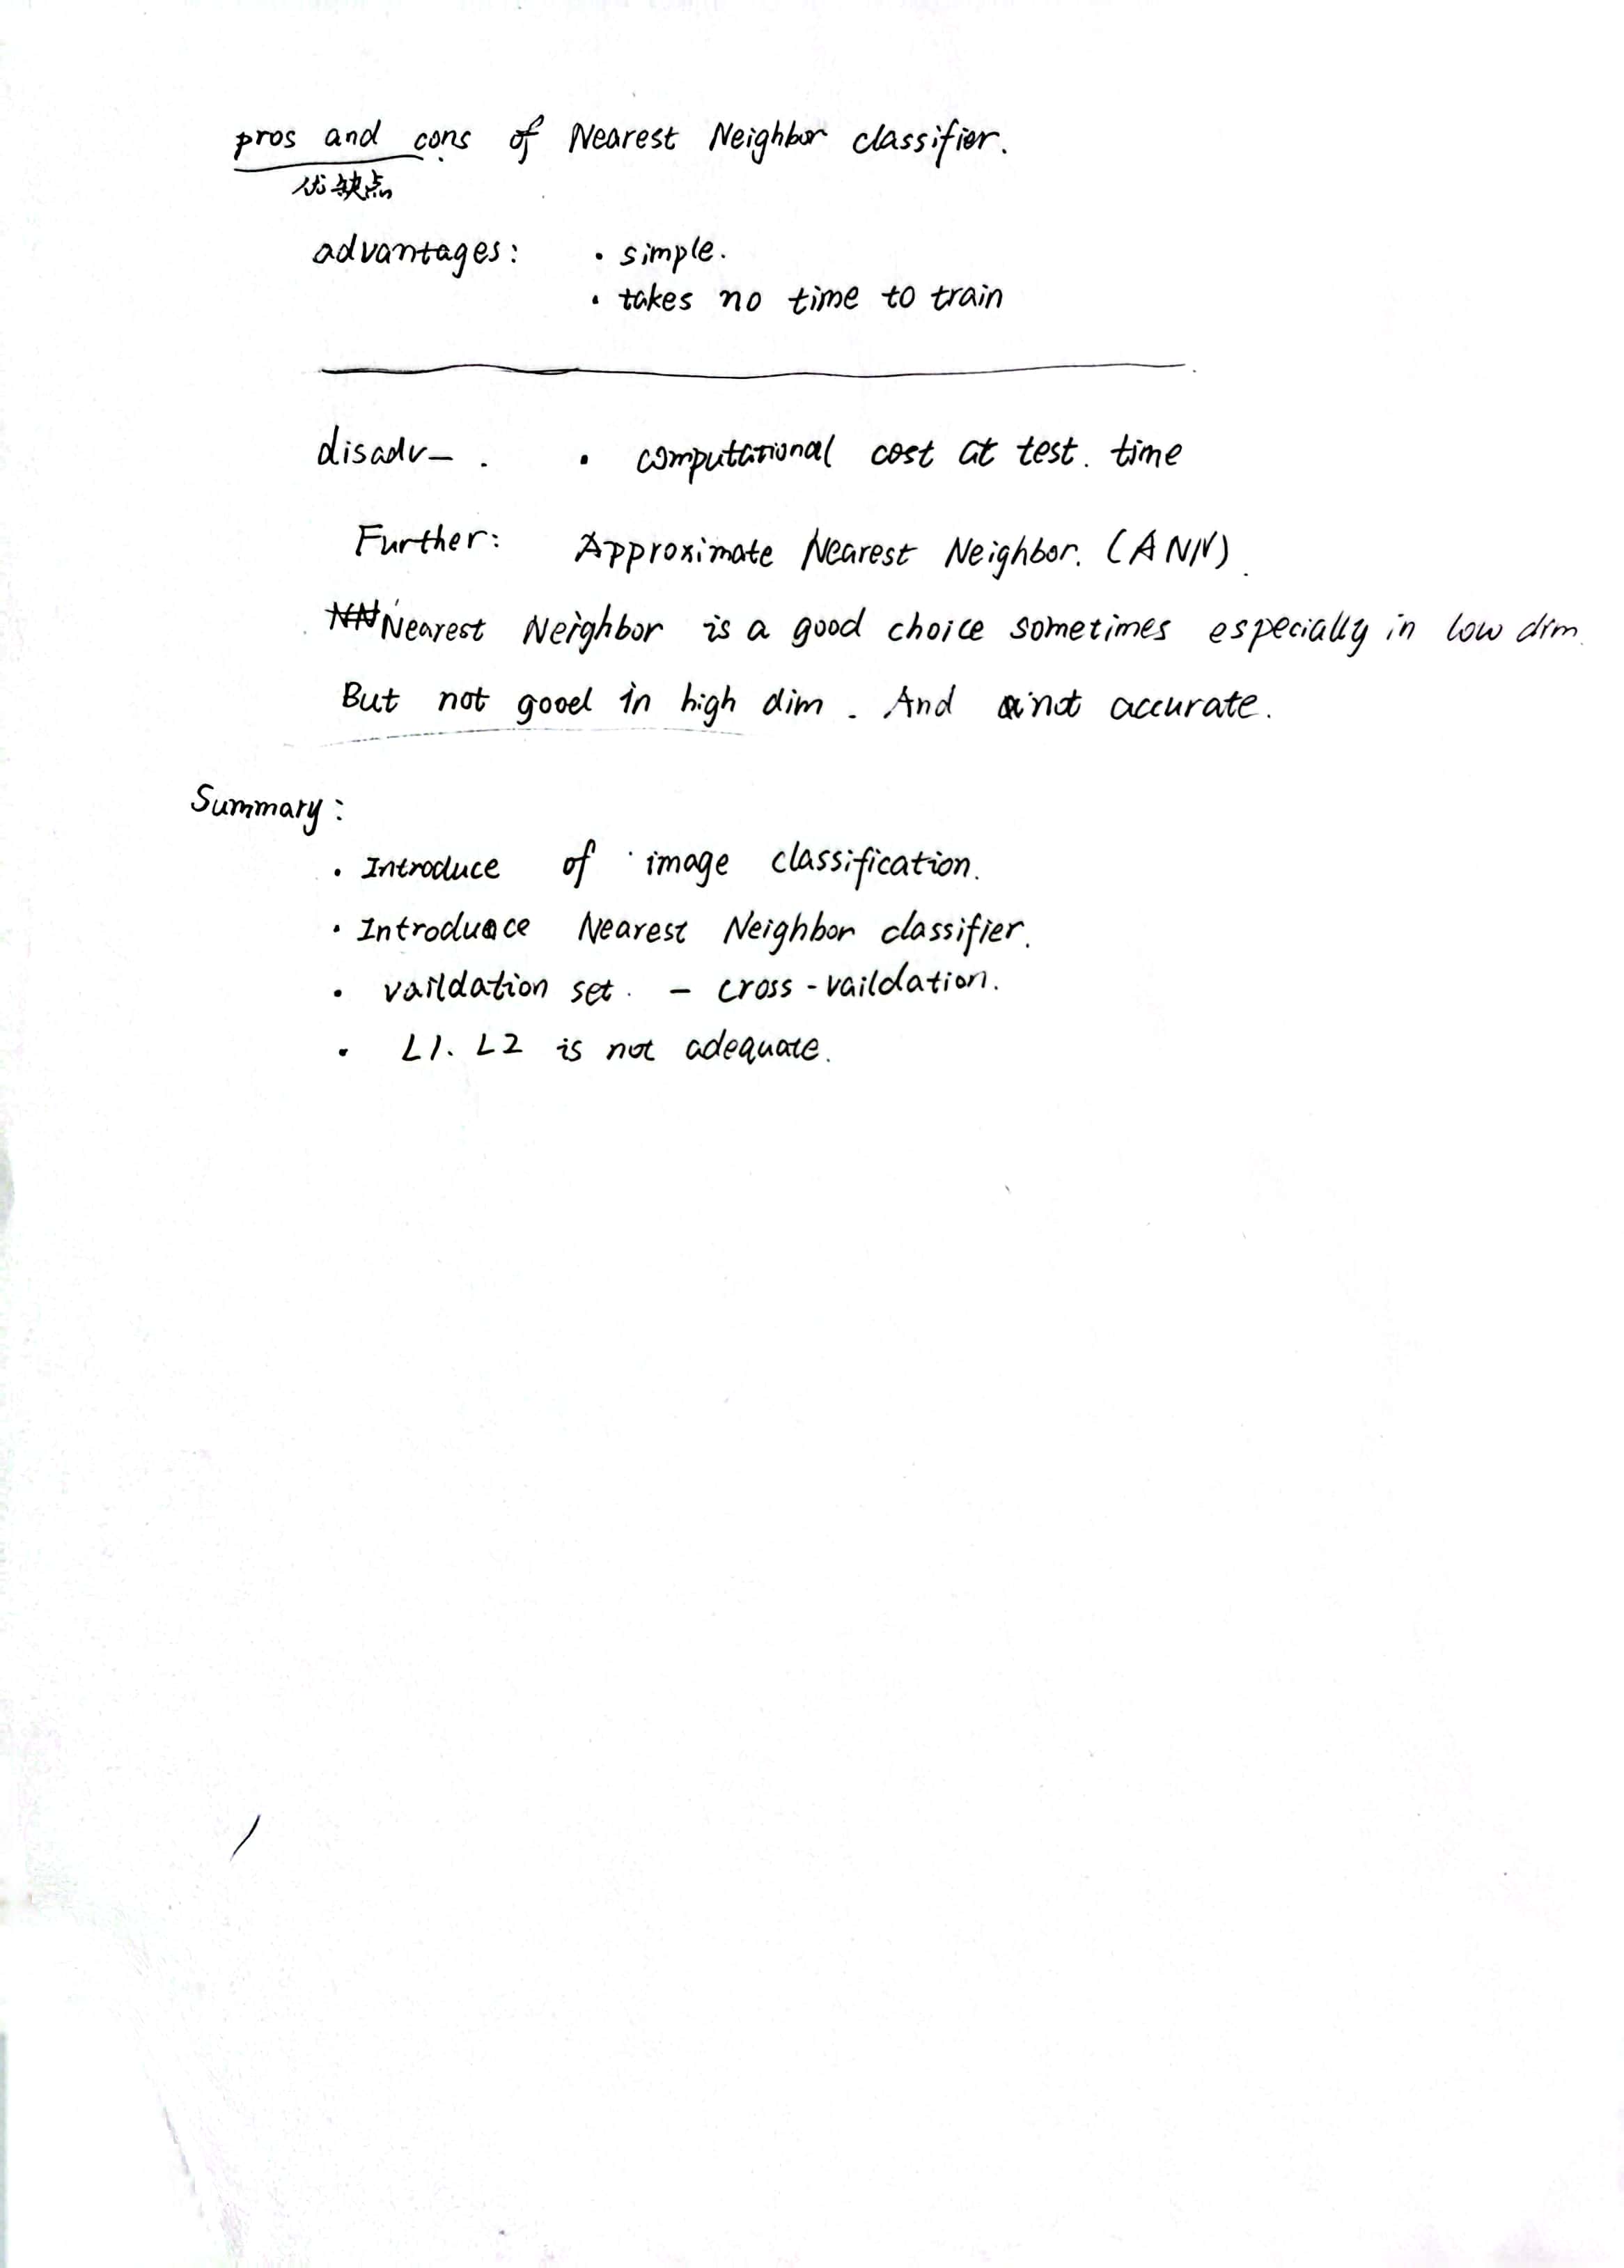 pros and cons of Nearest Neighbor classifier.
优缺点
advantages: · simple.
· takes no time to train
disadv— . · computational cost at test. time
Further: Approximate Nearest Neighbor. (ANN).
Nearest Neighbor is a good choice sometimes especially in low dim.
But not good in high dim. And not accurate.
Summary:
· Introduce of image classification.
· Introduce Nearest Neighbor classifier.
· vaildation set. - cross-vaildation.
· L1. L2 is not adequate.